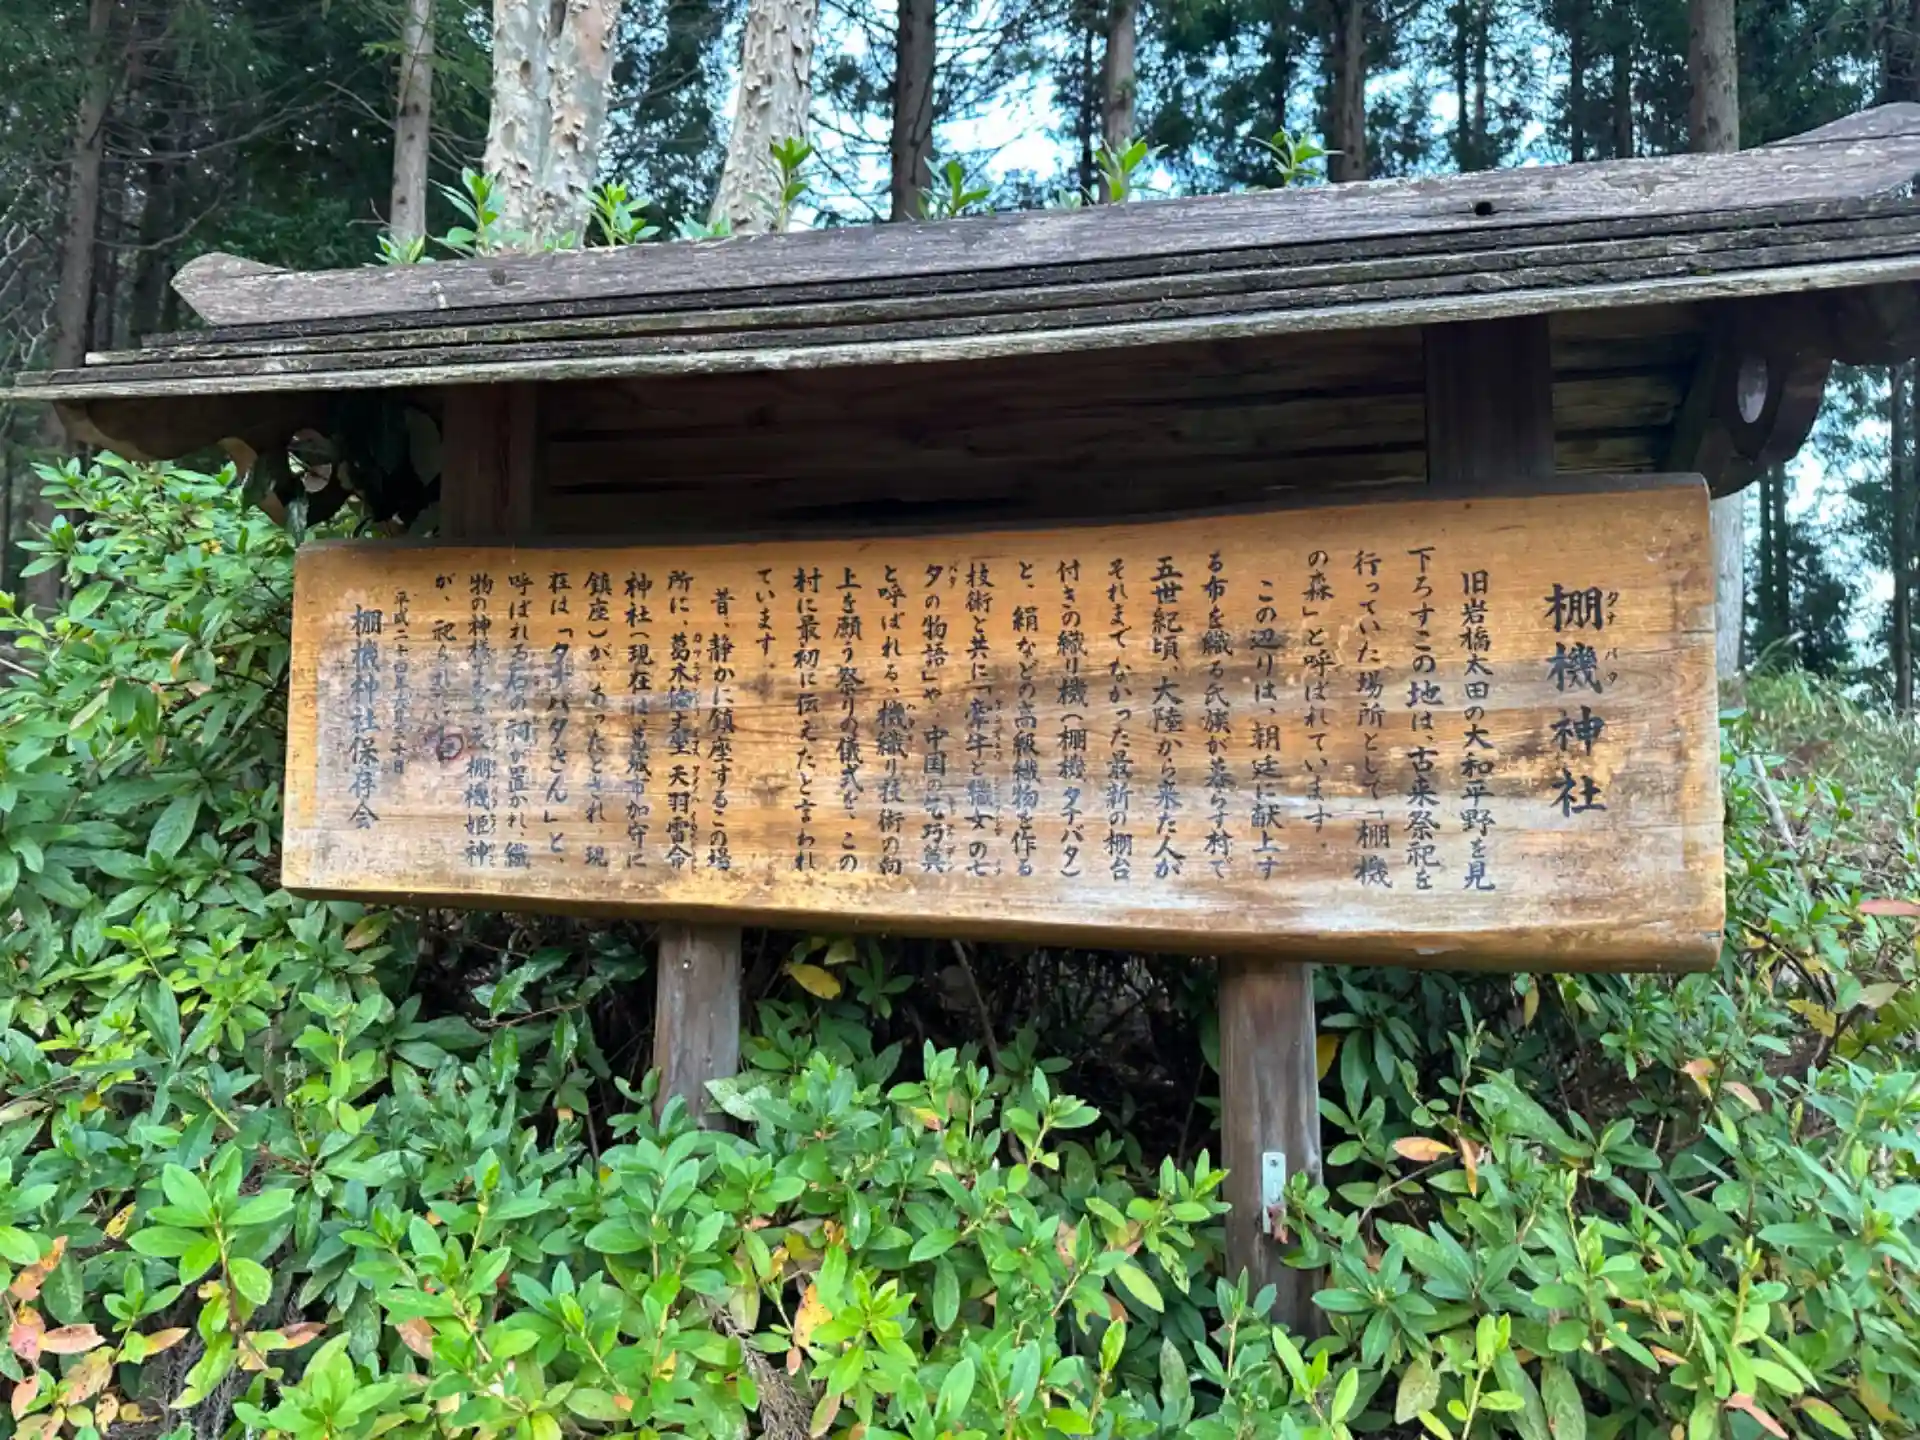 棚機神社
タナ バタ
旧岩橋太田の大和平野を見
下ろすこの地は、古来祭祀を
行っていた場所として「棚機
の森」と呼ばれています。
この辺りは、朝廷に献上す
る布を織る氏族が暮らす村で
五世紀頃、大陸から来た人が
それまでなかった最新の棚台
付きの織り機(棚機タナバタ)
と、絹などの高級織物を作る
技術と共に「牽牛と織女の七
夕の物語」や、中国の乞巧奠
と呼ばれる、機織り技術の向
上を願う祭りの儀式を、この
村に最初に伝えたと言われ
ています
昔、静かに鎮座するこの場
所に、葛木倭文坐天羽雷命
神社(現在は、葛城市加守に
鎮座)が、あったとされ、現
在は「タナバタさん」と、
呼ばれる石の祠が置かれ、織
物の神様である天棚機姫神
が、祀られて
平成二十四年六月三十日
棚機神社保存会